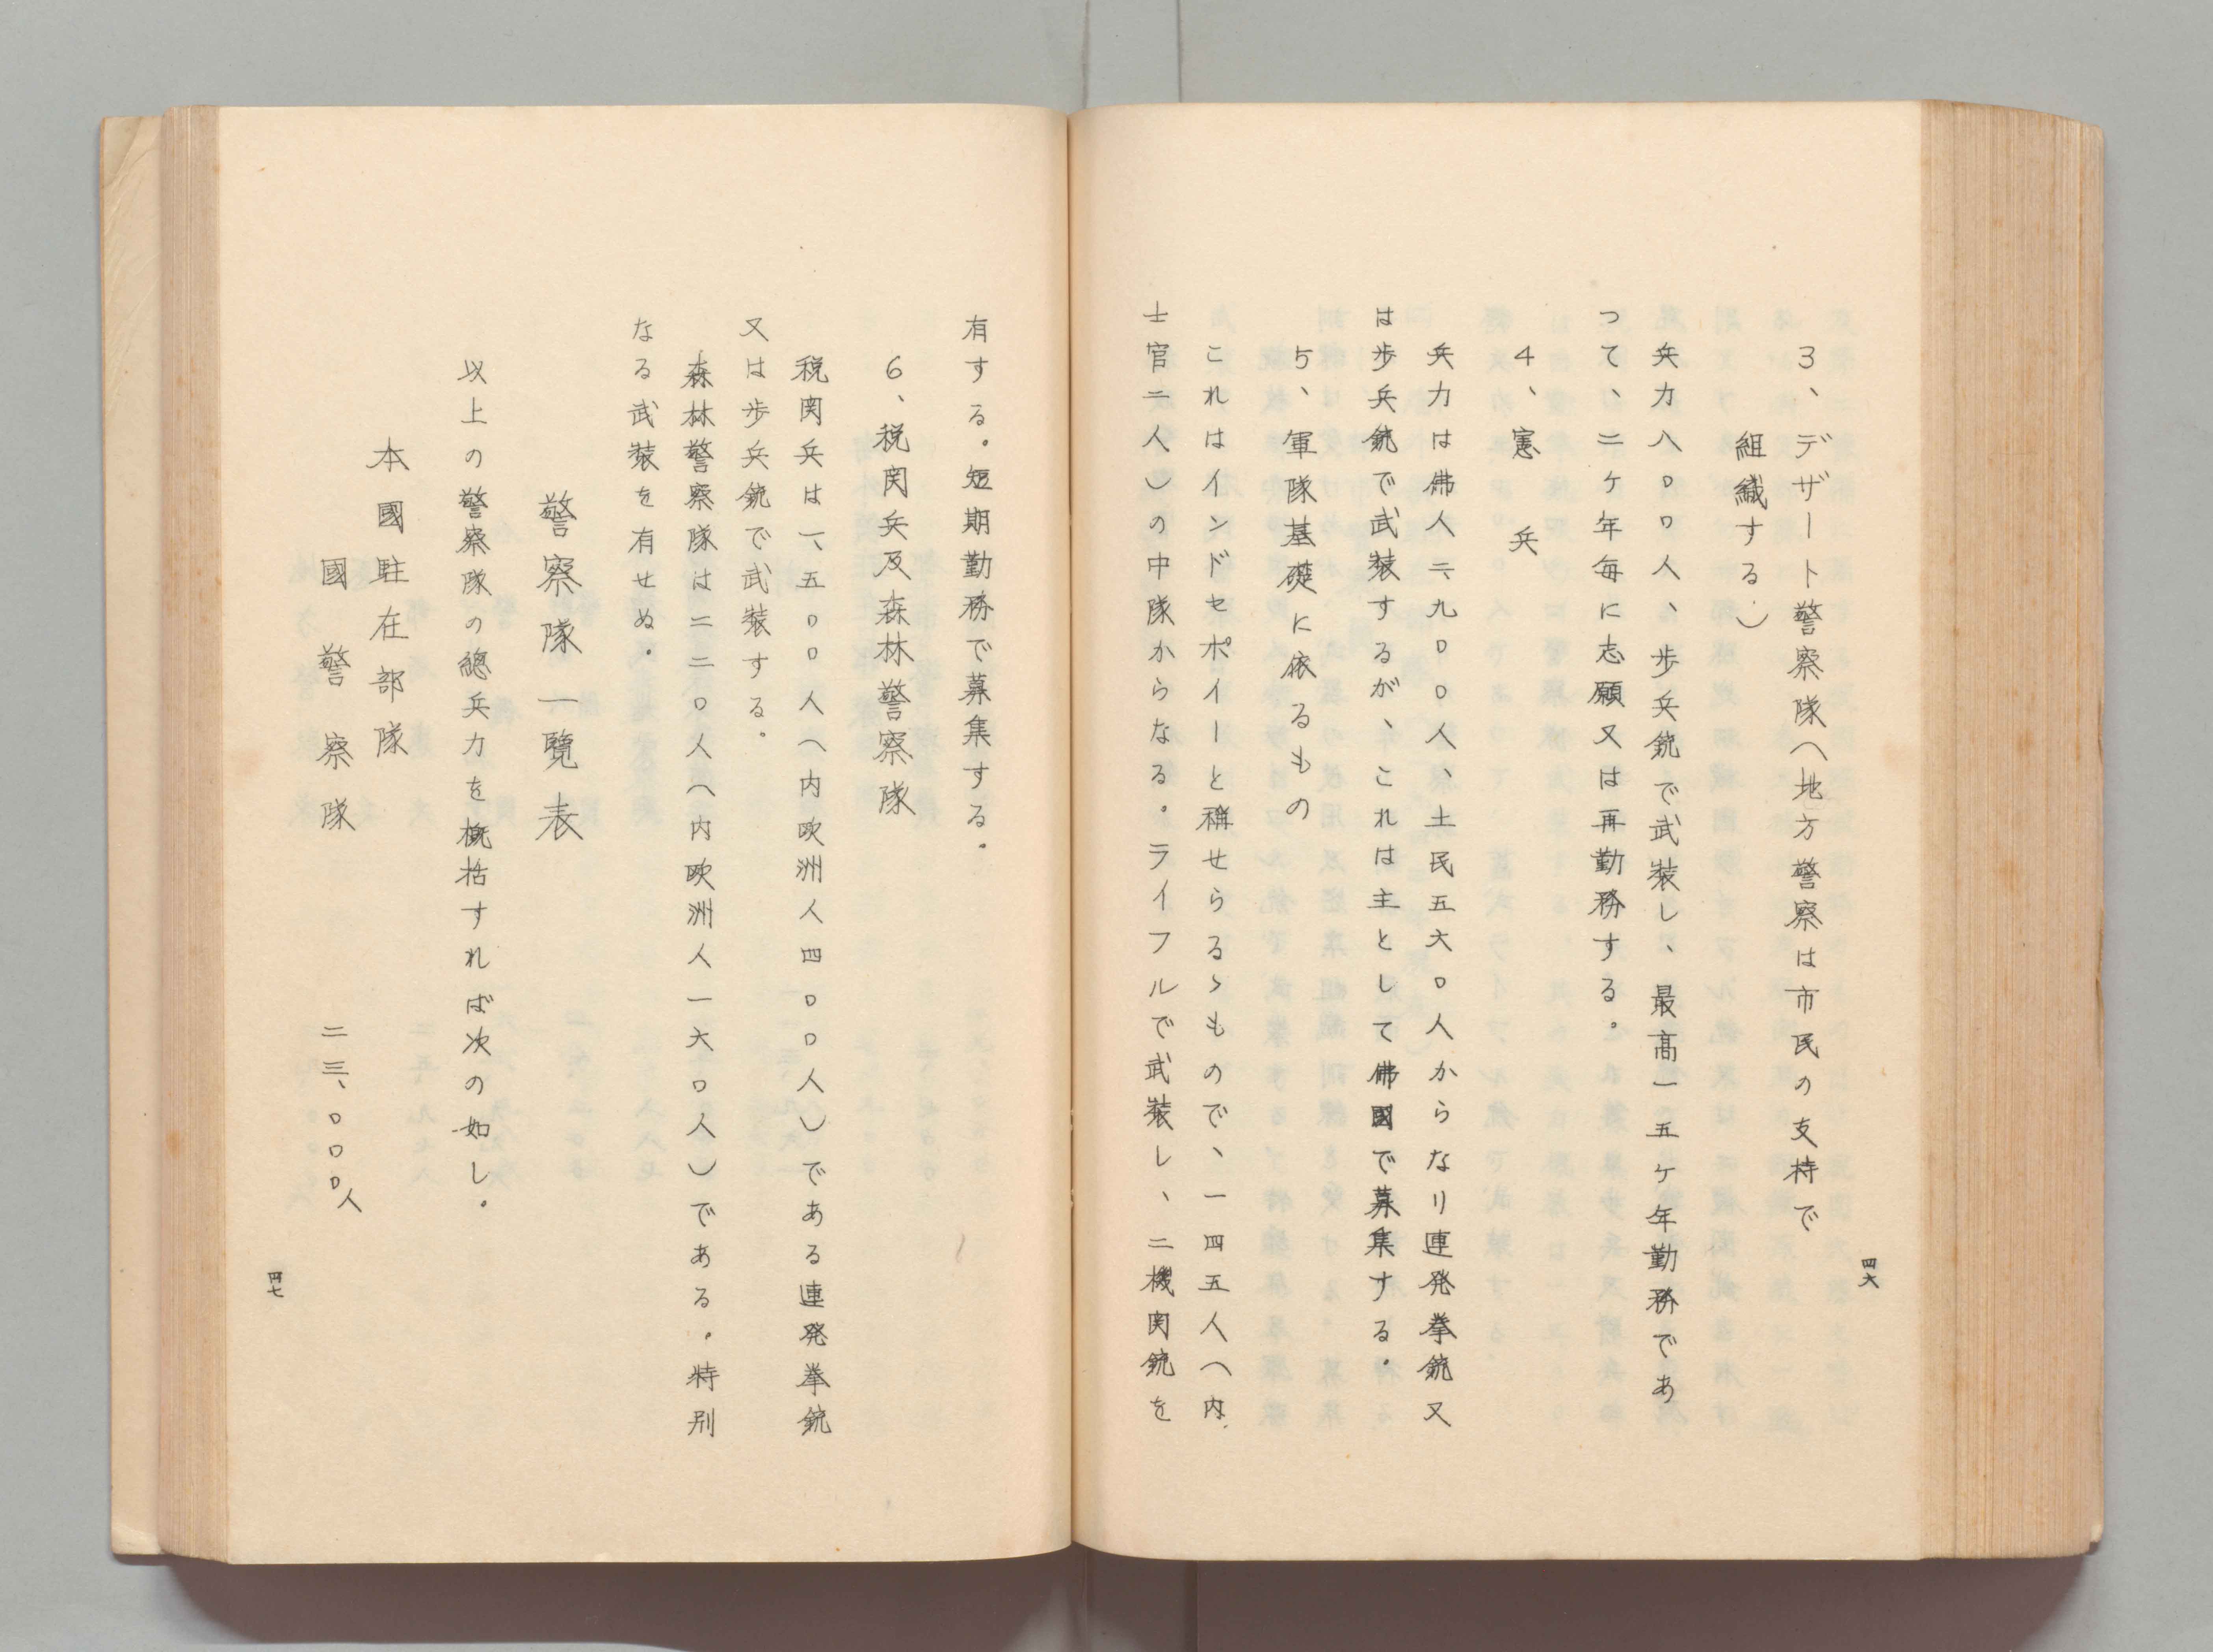 3、デザート警察隊(地方警察は市民の支持で
組織する)
兵力八〇〇人、歩兵銃で武装し、最高一五ケ年勤務であ
つて、二ケ年毎に志願又は再勤務する。
4、憲兵
兵力は佛人二、九〇〇人、土民五六〇人からなり連発拳銃又
は歩兵銃で武装するが、これは主として佛國で募集する。
5、軍隊基礎に依るもの
これはインドセポイーと稱せらるゝもので、一四五人(内、
士官二人)の中隊からなる。ライフルで武装し、二機関銃を
四六
有する。短期勤務で募集する。
6、税関兵及森林警察隊
税関兵は一、五〇〇人(内欧洲人四〇〇人)である連発拳銃
又は歩兵銃で武装する。
森林警察隊は二二〇人(内欧洲人一六〇人)である。特別
なる武装を有せぬ。
警察隊一覽表
以上の警察隊の總兵力を概括すれば次の如し。
本國駐在部隊
國警察隊 二三、〇〇〇人
四七